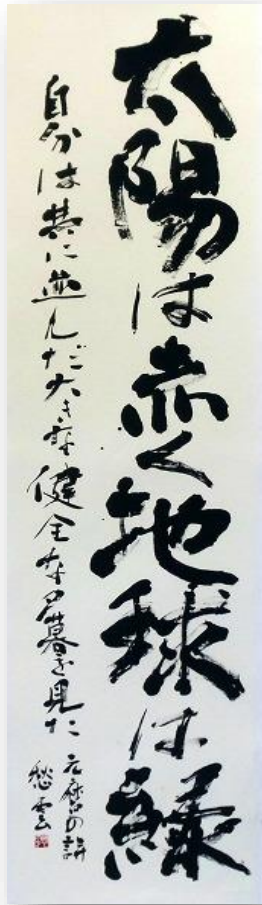 太陽は赤く地球は緑
自分は共に並んだ大きな健全な夕暮を見た
元麿の詩
愁雲